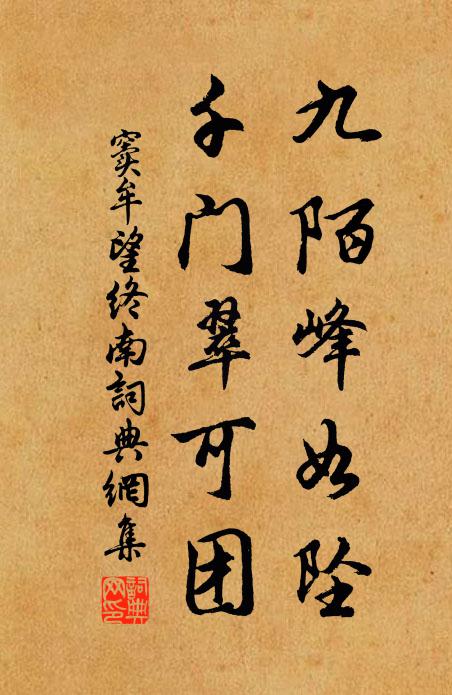 九陌峰如坠
千门翠可团
窦牟望终南詞典網集
詞典网印